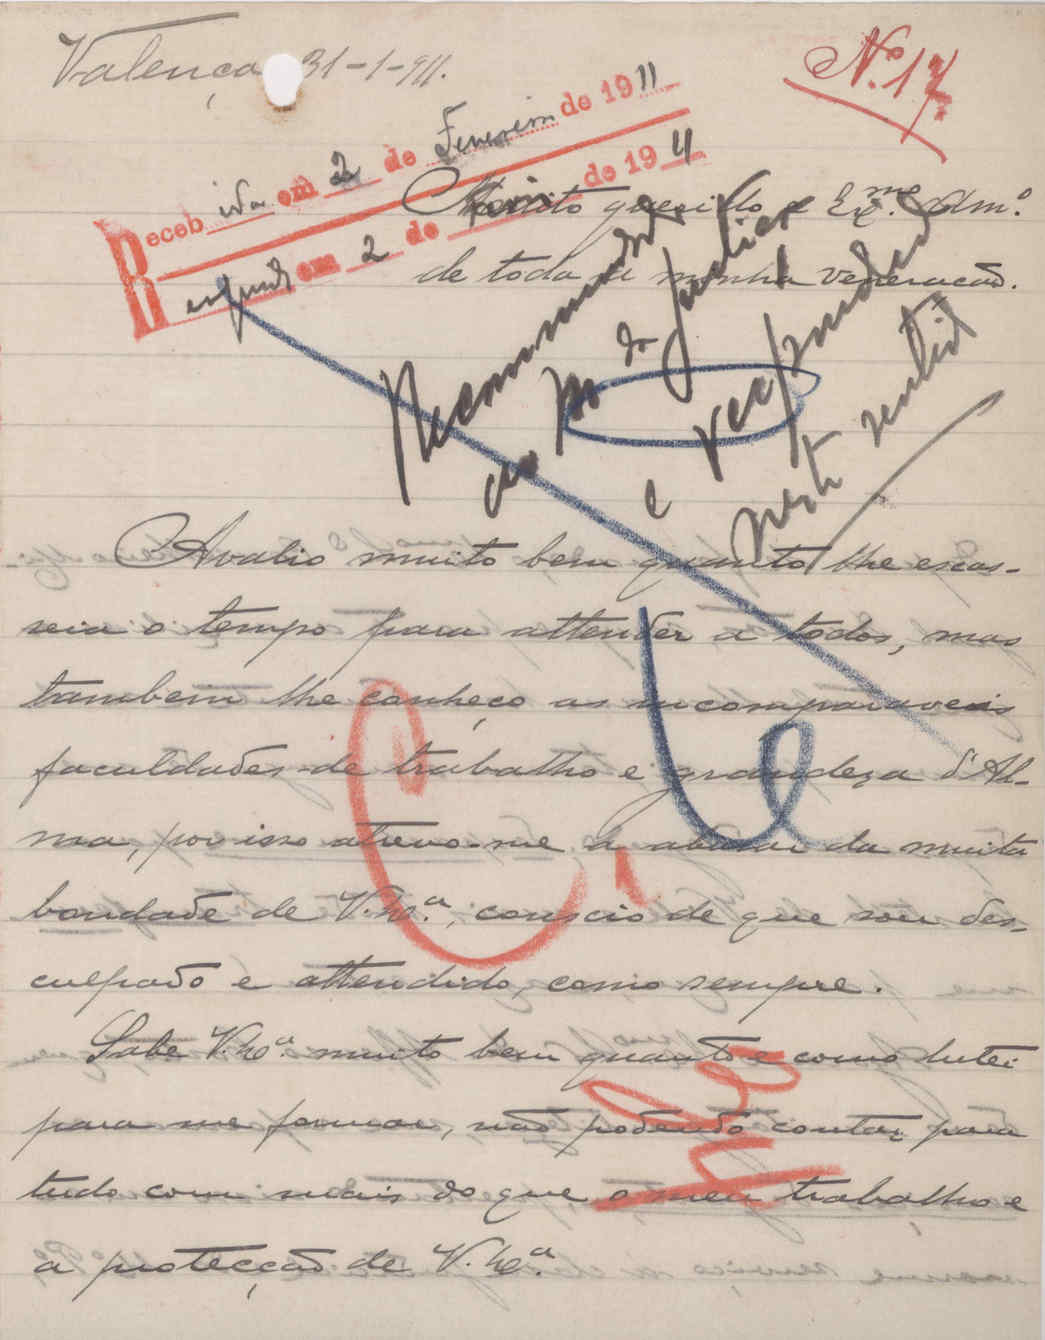 Valença 31-1-911.
Nº 17
Recebida em 2 de Fevereiro de 1911
Respondida em 2 de de 1911
Muito querido e Exmo. Amº
de toda a minha veneração.
Recommendado
ao M da Justiça
e respondido
neste sentido
Avalio muito bem quanto lhe escas-
seia o tempo para attender a todos, mas
tambem lhe conheço as incomparaveis
faculdades de trabalho e grandeza d'Al-
ma, por isso atrevo-me a abusar da muita
bondade de V. Exª, conscio de que sou des-
culpado e attendido, como sempre.
Sabe V. Exª muito bem quanto e como lutei
para me formar, não podendo contar para
tudo com mais do que o meu trabalho e
a protecção de V. Exª.